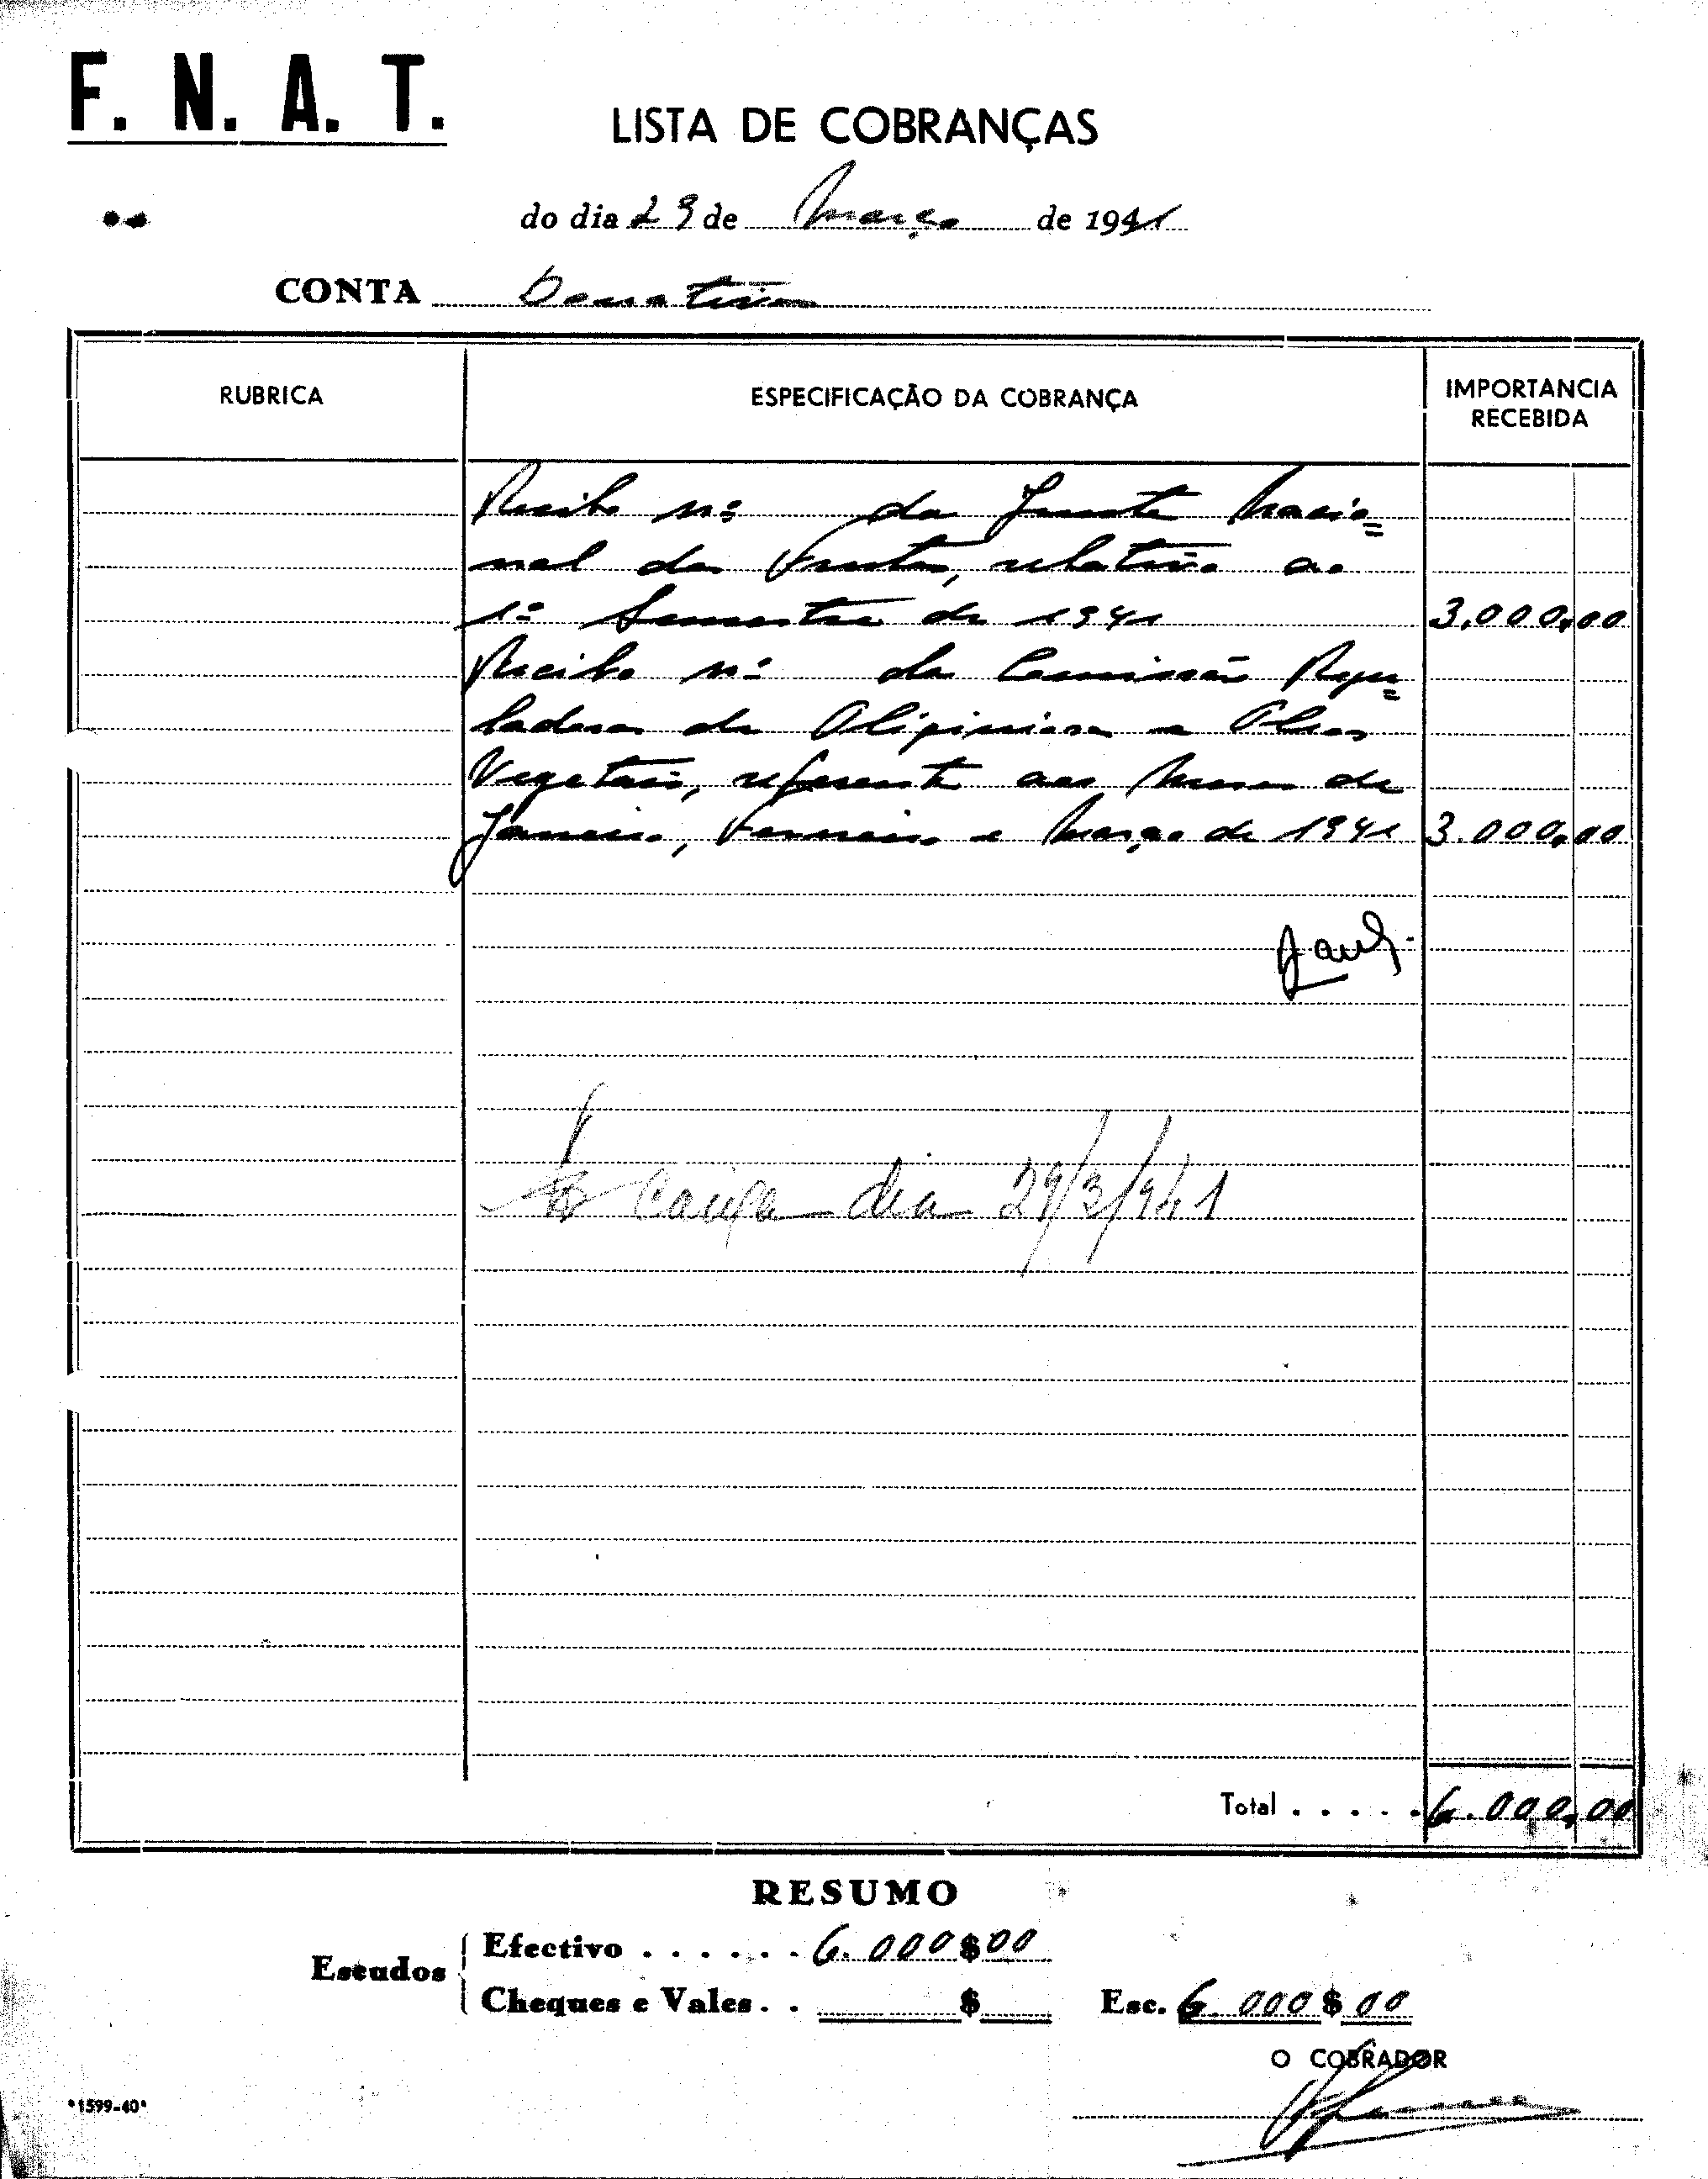 F. N. A. T.
LISTA DE COBRANÇAS
do dia 29 de Março de 1941
CONTA Donativos
RUBRICA ESPECIFICAÇÃO DA COBRANÇA IMPORTANCIA RECEBIDA
Recibo nº da Junta Nacio=
nal das Frutas, relativo ao
1º Semestre de 1941 3.000,00
Recibo nº da Comissão Regu=
ladora de Oliginosas e Oleos
Vegetais, referente aos meses de
Janeiro, Fevereiro e Março de 1941 3.000,00
Caixa dia 29/3/941
Total . . . . . 6.000,00
RESUMO
Escudos
Efectivo . . . . . . 6.000$00
Cheques e Vales . . $
Esc. 6.000$00
O COBRADOR
*1599-40*